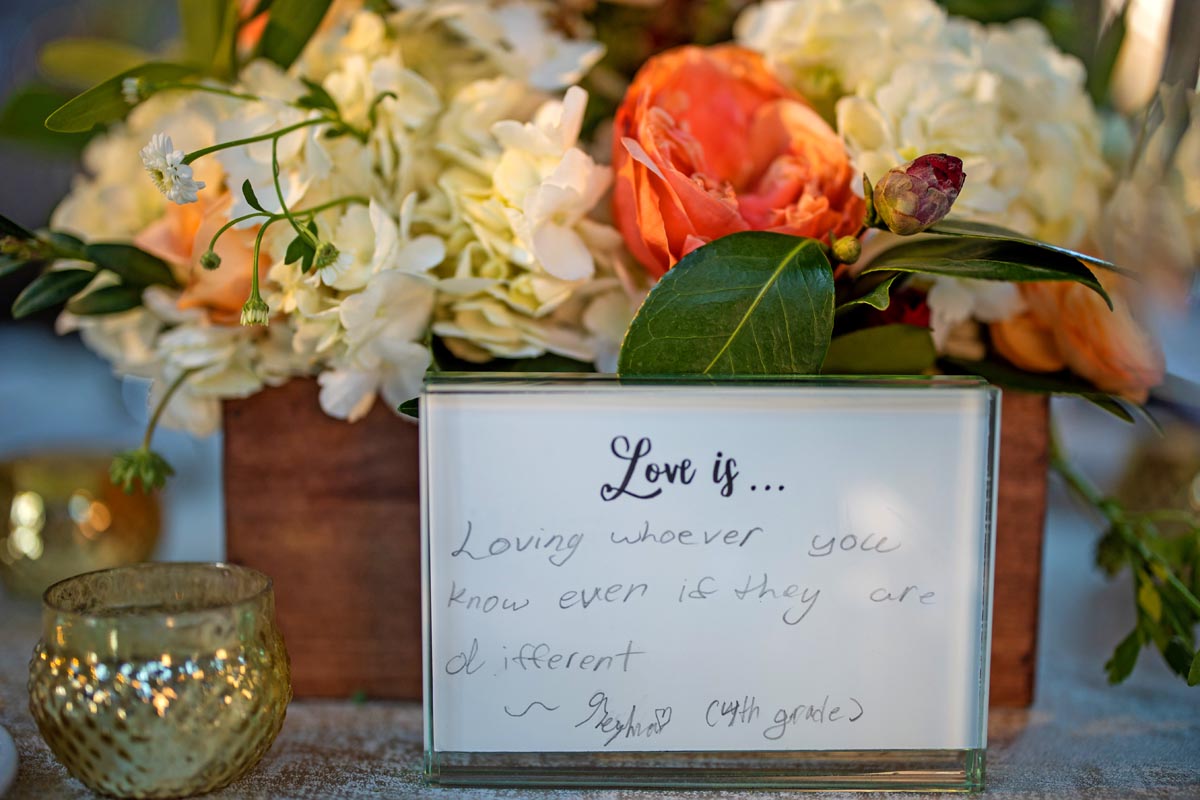 Love is...
Loving whoever you
know even if they are
different
~ (4th grade)